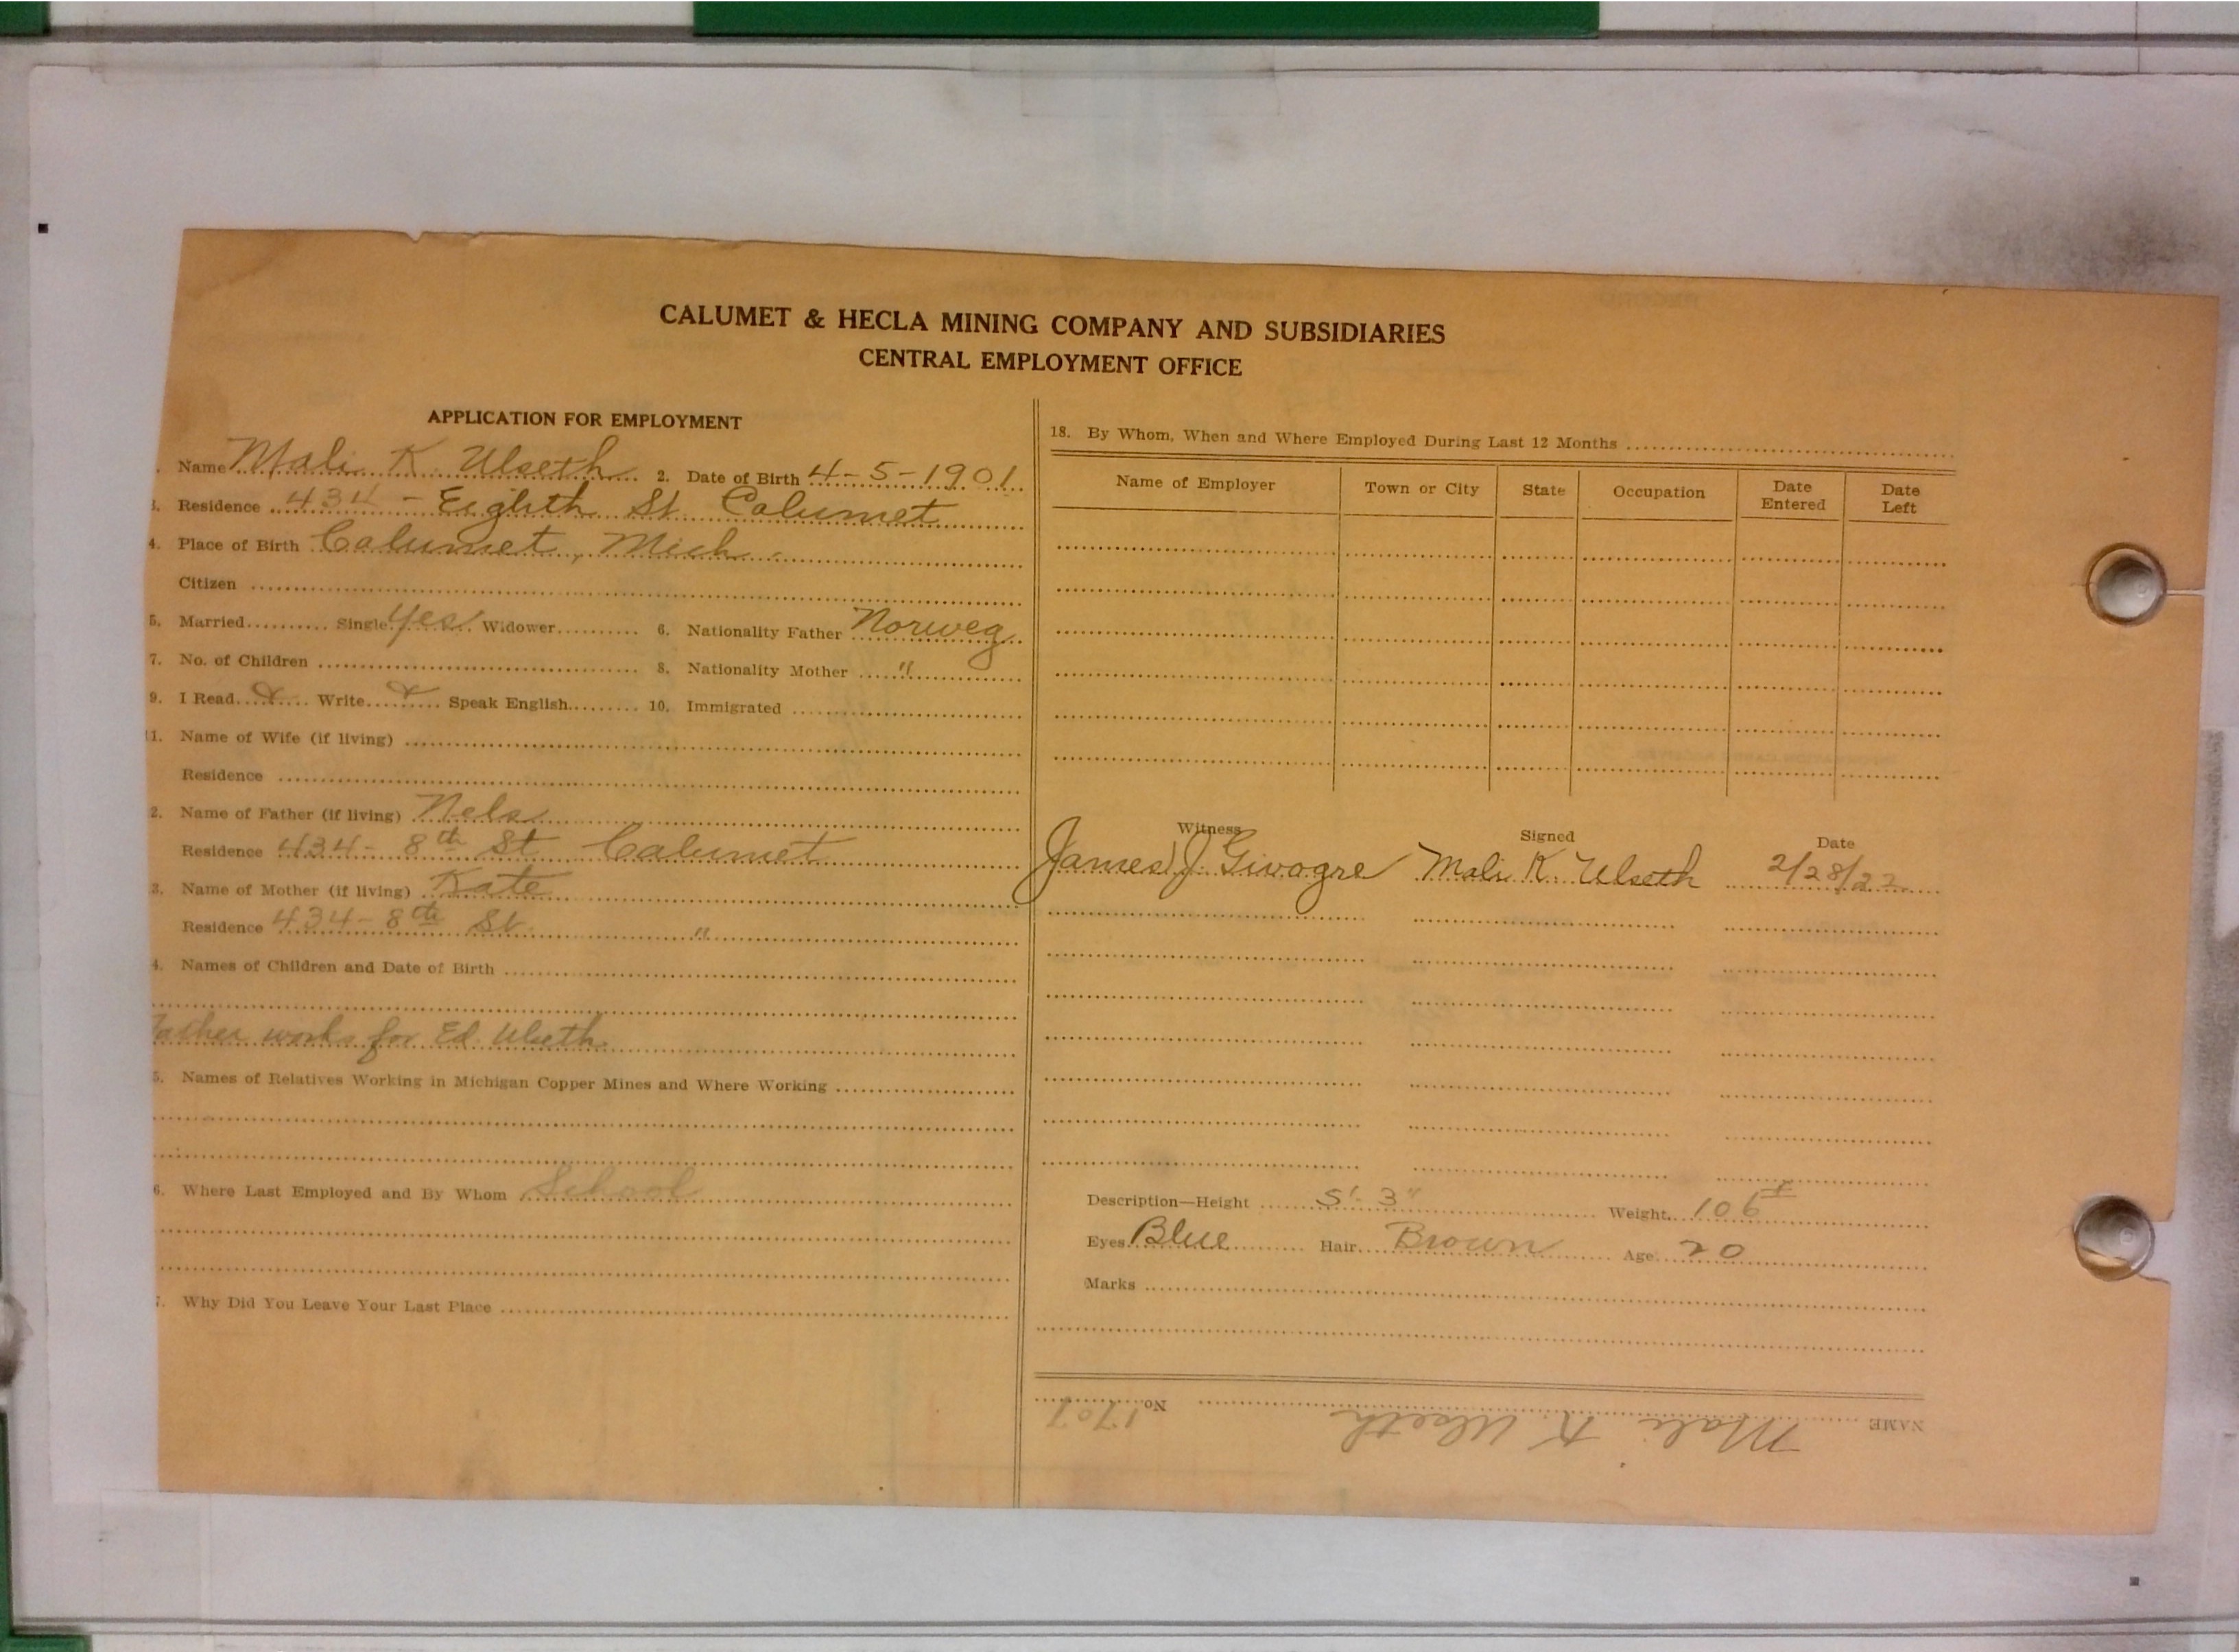 CALUMET & HECLA MINING COMPANY AND SUBSIDIARIES
CENTRAL EMPLOYMENT OFFICE
APPLICATION FOR EMPLOYMENT
. Name Mali K. Ulseth 2. Date of Birth 4-5-1901
3. Residence 434 - Eighth St. Calumet
4. Place of Birth Calumet, Mich.
Citizen
5. Married Single Yes Widower 6. Nationality Father Norweg
7. No. of Children 8. Nationality Mother "
9. I Read Write Speak English 10. Immigrated
11. Name of Wife (if living)
Residence
2. Name of Father (if living) Nels
Residence 434 - 8th St Calumet
3. Name of Mother (if living) Kate
Residence 434 - 8th St. "
4. Names of Children and Date of Birth
Father works for Ed. Ulseth
5. Names of Relatives Working in Michigan Copper Mines and Where Working
6. Where Last Employed and By Whom School
7. Why Did You Leave Your Last Place
18. By Whom, When and Where Employed During Last 12 Months
Name of Employer Town or City State Occupation Date Entered Date Left
Witness Signed Date
James J. Mali K. Ulseth 2/28/22
Description—Height 5'-3" Weight 106#
Eyes Blue Hair Brown Age 20
Marks
NAME Mali K Ulseth No. 1707